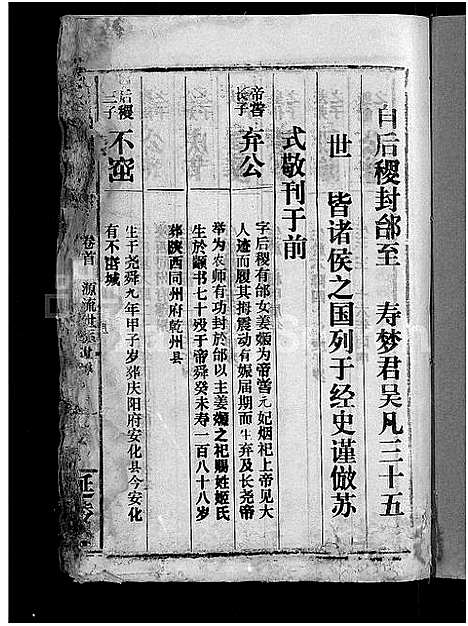 自后稷封邰至　寿梦君吴凡三十五
世　皆诸侯之国列于经史谨倣苏
式敬刊于前
帝喾
长子
弃公
字后稷有邰女姜嫄为帝喾元妃烟祀上帝见大
人迹而履其拇震动有娠届期而生弃及长尧帝
举为农师有功封於邰以主姜嫄之祀赐姓姬氏
生於颛书七十殁于帝舜癸未寿一百八十八岁
葬陕西同州府乾州县
后稷
三子
不窋
生于尧舜九年甲子岁葬庆阳府安化县今安化
有不窋城
卷首　源流世系
延陵